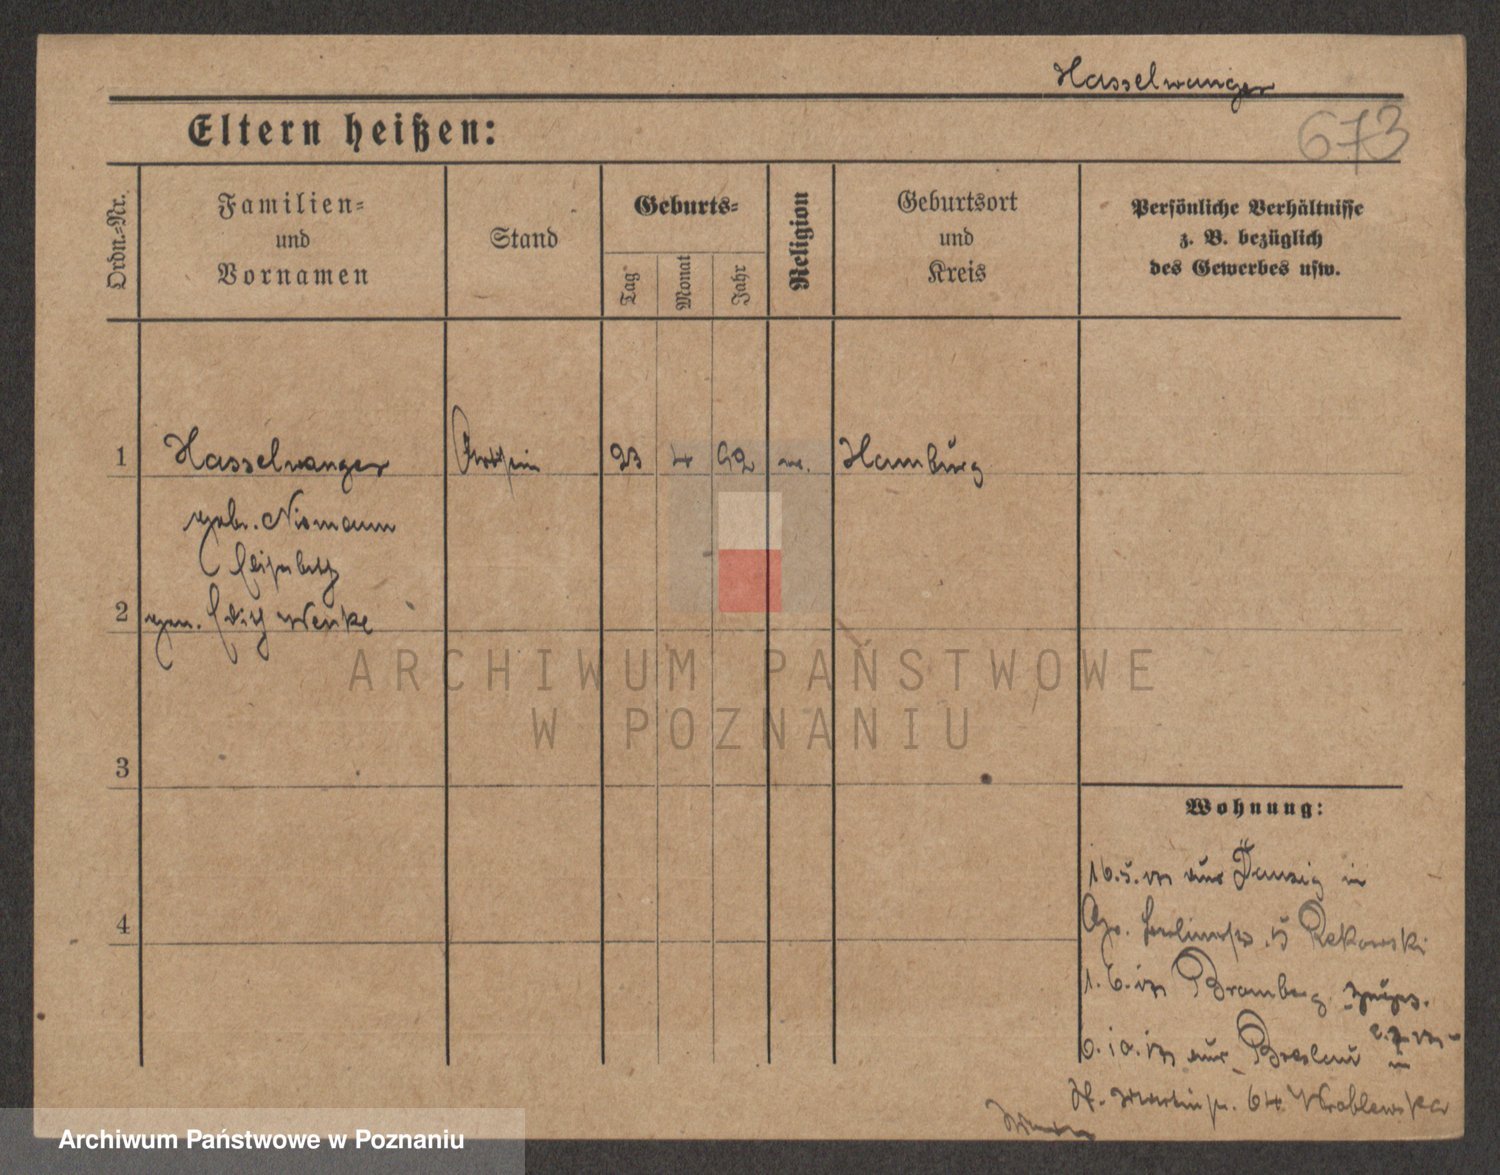 Hasselwanger
673
Eltern heißen:
Ordn.-Nr.
Familien- und Vornamen
Stand
Geburts-
Tag
Monat
Jahr
Religion
Geburtsort und Kreis
Persönliche Verhältnisse
z. B. bezüglich
des Gewerbes usw.
1 Hasselwanger 23 4 92 Hamburg
geb. Niemann
Elisabeth
2 gen. Edith Wenke
ARCHIWUM PAŃSTWOWE
W POZNANIU
3
Wohnung:
16.5. aus Danzig in
4 5 Rekowski
1.6. Bromberg
6.10. aus Breslau
St. Martinstr. 64 Wroblewska
Archiwum Państwowe w Poznaniu